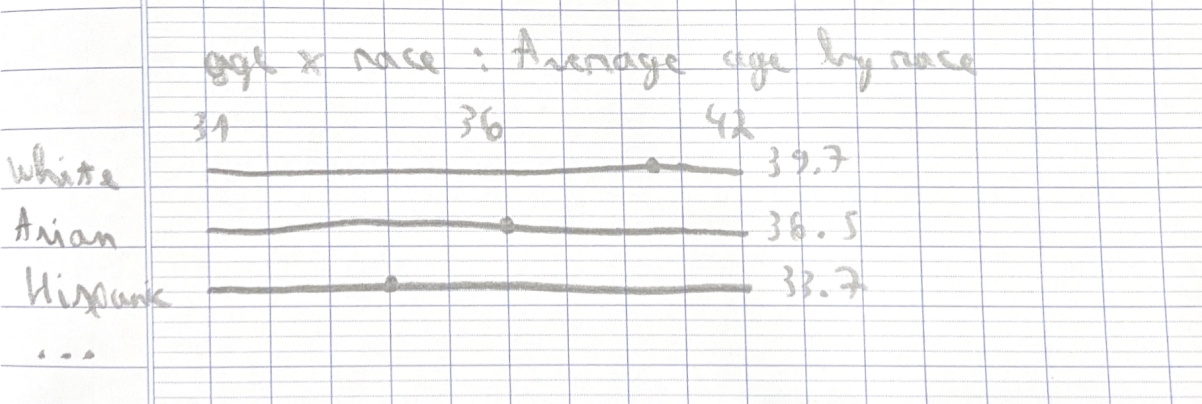 age x race : Average age by race
31 36 42
White 39.7
Asian 36.5
Hispanic 33.7
...